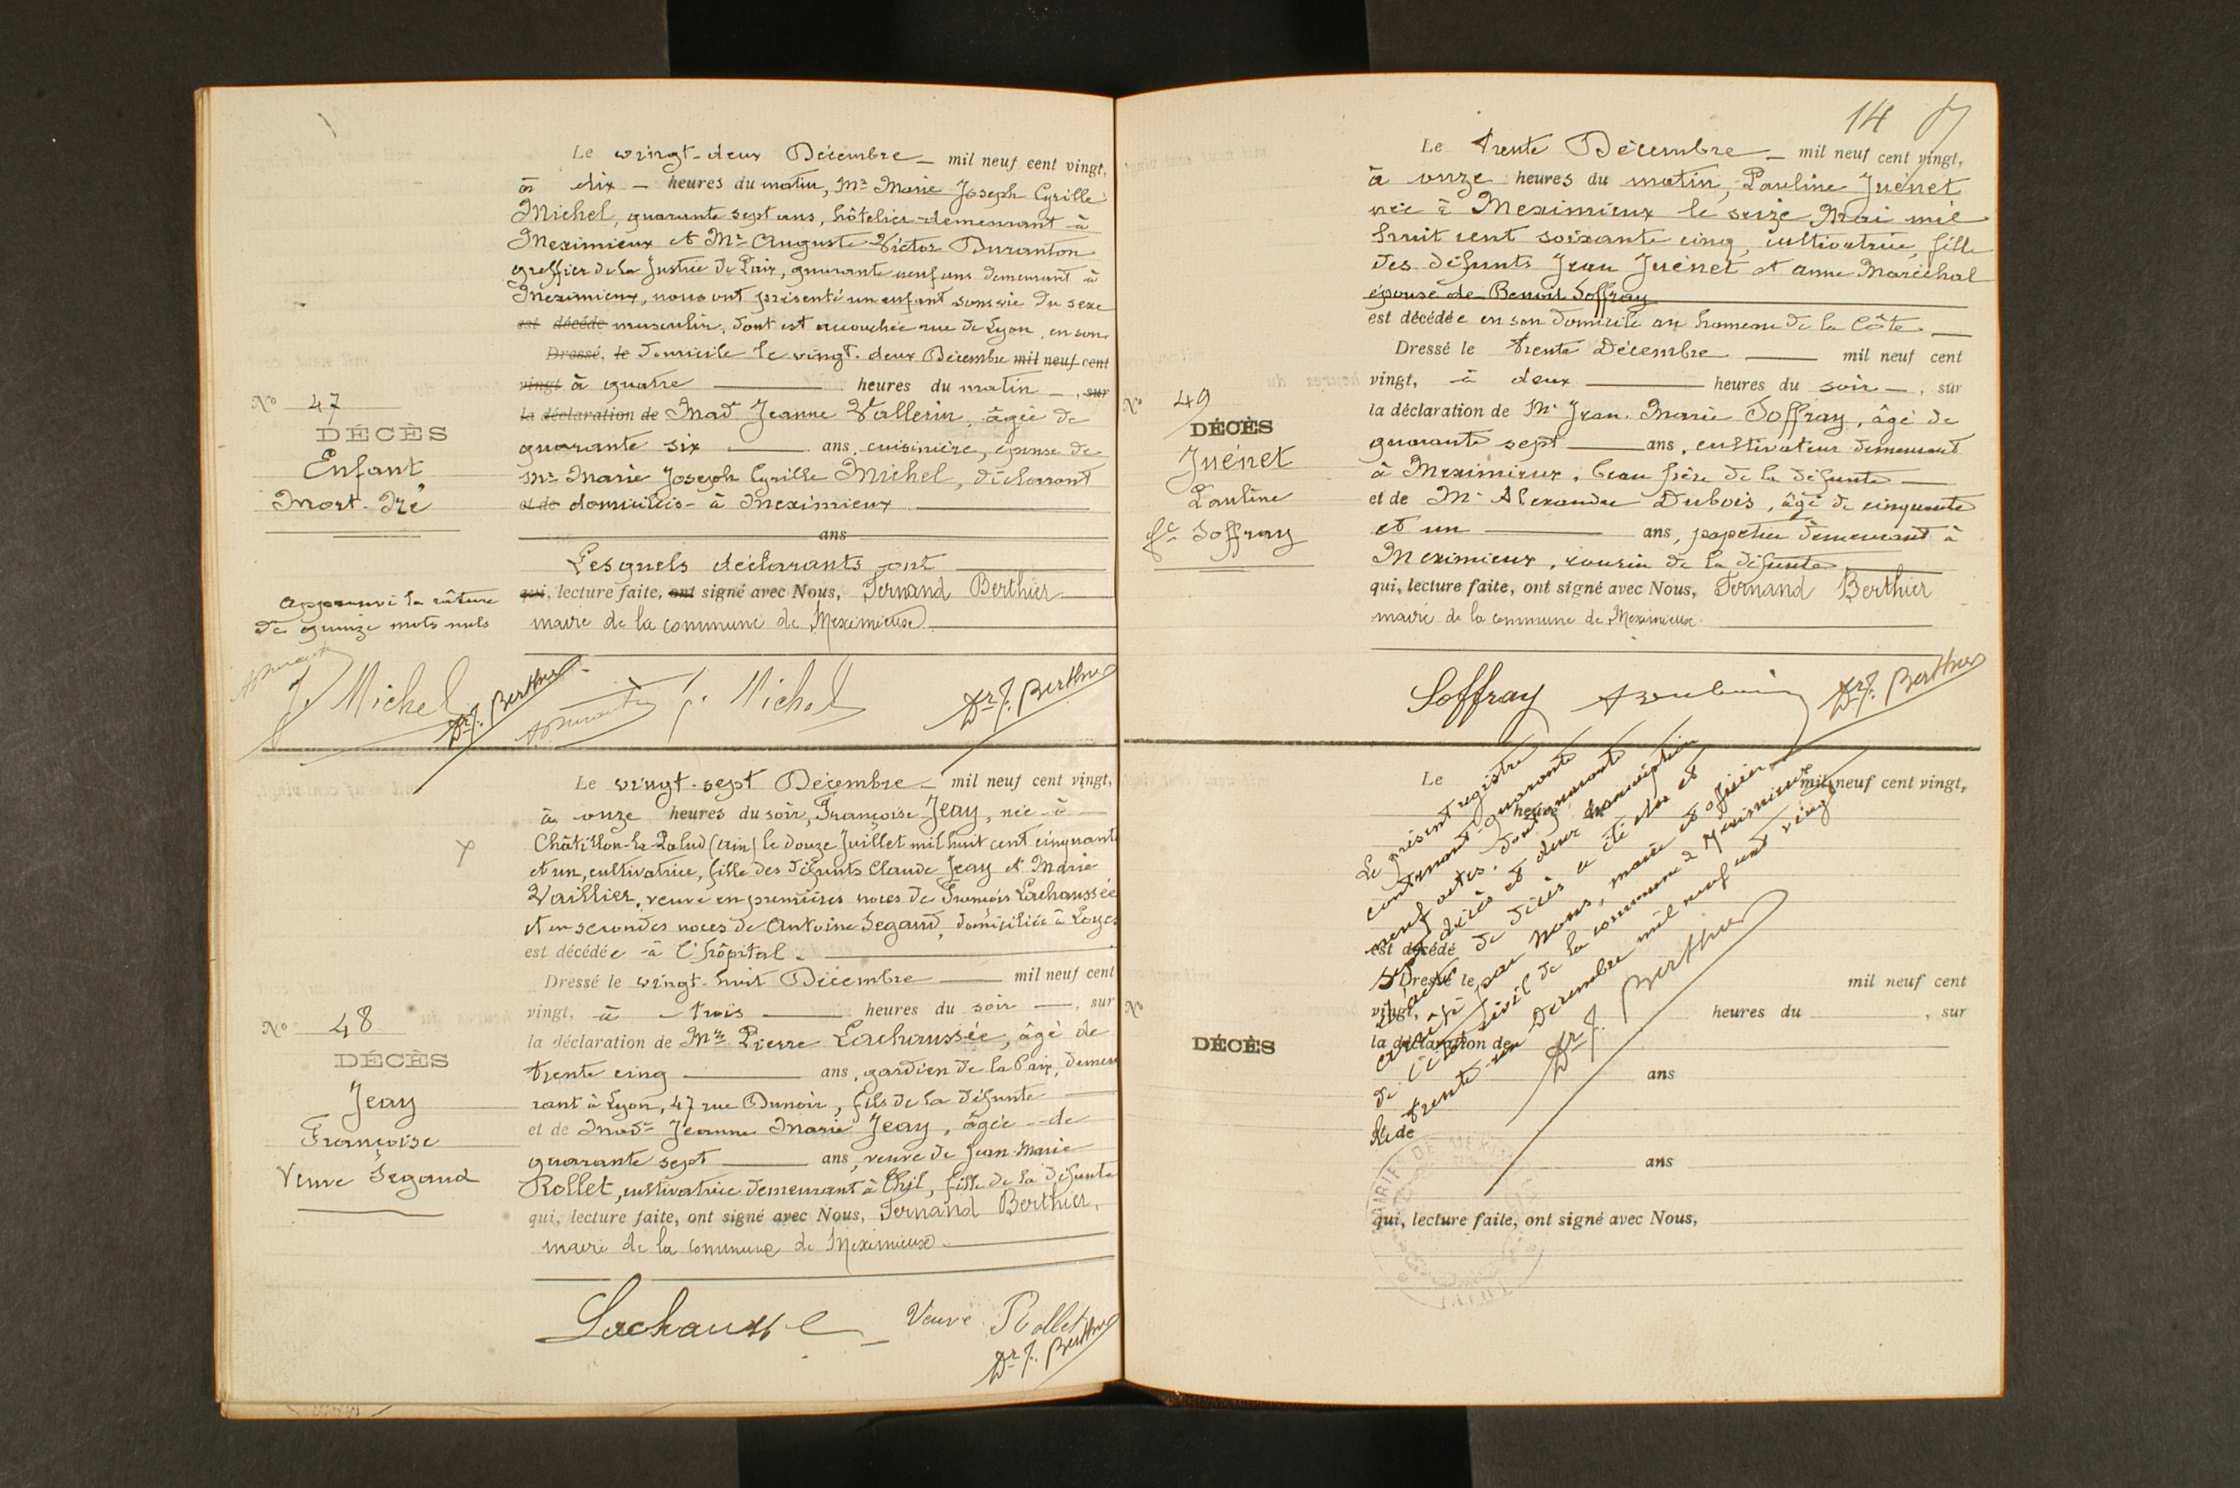 Le vingt-deux Décembre mil neuf cent vingt,
à dix heures du matin, Mr Marie Joseph Cyrille
Michel, quarante sept ans, hôtelier demeurant à
Meximieux et Mr Auguste Victor Duranton
greffier de la Justice de Paix, quarante neuf ans demeurant à
Meximieux, nous ont présenté un enfant sans vie du sexe
est décédé masculin, dont est accouchée rue de Lyon, en son
Dressé, le domicile le vingt-deux Décembre mil neuf cent
vingt à quatre heures du matin, sur
la déclaration de Made Jeanne Vallerin, âgée de
quarante six ans, cuisinière, épouse de
Mr Marie Joseph Cyrille Michel, déclarant
et de domiciliés à Meximieux
ans
Lesquels déclarants ont
qui, lecture faite, ont signé avec Nous, Fernand Berthier
maire de la commune de Meximieux
No 47
DÉCÈS
Enfant
Mort-Né
Approuvé la râture
de quinze mots nuls
J. Michel
Dr F. Berthier
J. Michel
Dr F. Berthier
Le vingt-sept Décembre mil neuf cent vingt,
à onze heures du soir, Françoise Jeay, née à
Châtillon-la-Palud (Ain) le douze Juillet mil huit cent cinquante
et un, cultivatrice, fille des défunts Claude Jeay et Marie
Vaillier, veuve en premières noces de François Lachaussée
et en secondes noces de Antoine Segaud, domiciliée à Loyes
est décédée à l'hôpital.
Dressé le vingt-huit Décembre mil neuf cent
vingt, à trois heures du soir, sur
la déclaration de Mr Pierre Lachaussée, âgé de
trente cinq ans, gardien de la Paix, demeu
rant à Lyon, 47 rue Dunoir, fils de la défunte
et de Made Jeanne Marie Jeay, âgée de
quarante sept ans, veuve de Jean Marie
Rollet, cultivatrice demeurant à Thil, fille de la défunte
qui, lecture faite, ont signé avec Nous, Fernand Berthier,
maire de la commune de Meximieux.
No 48
DÉCÈS
Jeay
Françoise
Veuve Segaud
Lachaussée Veuve Rollet
Dr F. Berthier
14
Le trente Décembre mil neuf cent vingt,
à onze heures du matin, Pauline Juénet
née à Meximieux le seize Mai mil
huit cent soixante cinq, cultivatrice, fille
des défunts Jean Juénet et Anne Maréchal
épouse de Benoit Soffray
est décédée en son domicile au hameau de la Côte
Dressé le trente Décembre mil neuf cent
vingt, à deux heures du soir, sur
la déclaration de Mr Jean-Marie Soffray, âgé de
quarante sept ans, cultivateur demeurant
à Meximieux, beau frère de la défunte
et de Mr Alexandre Dubois, âgé de cinquante
et un ans, papetier demeurant à
Meximieux, cousin de la défunte
qui, lecture faite, ont signé avec Nous, Fernand Berthier
maire de la commune de Meximieux.
No 49
DÉCÈS
Juénet
Pauline
fe Soffray
Soffray
Dr F. Berthier
Le mil neuf cent vingt,
heures du
est décédé
Dressé le mil neuf cent
vingt, heures du , sur
la déclaration de
ans
et de
ans
qui, lecture faite, ont signé avec Nous,
No
DÉCÈS
Le présent registre
contenant quarante
neuf actes, dont quarante
sept décès et deux transcription
d'actes de décès a été clos et
arrêté par Nous, maire et officier
de l'état civil de la commune de Meximieux
le trente-un Décembre mil neuf cent vingt
Dr F. Berthier